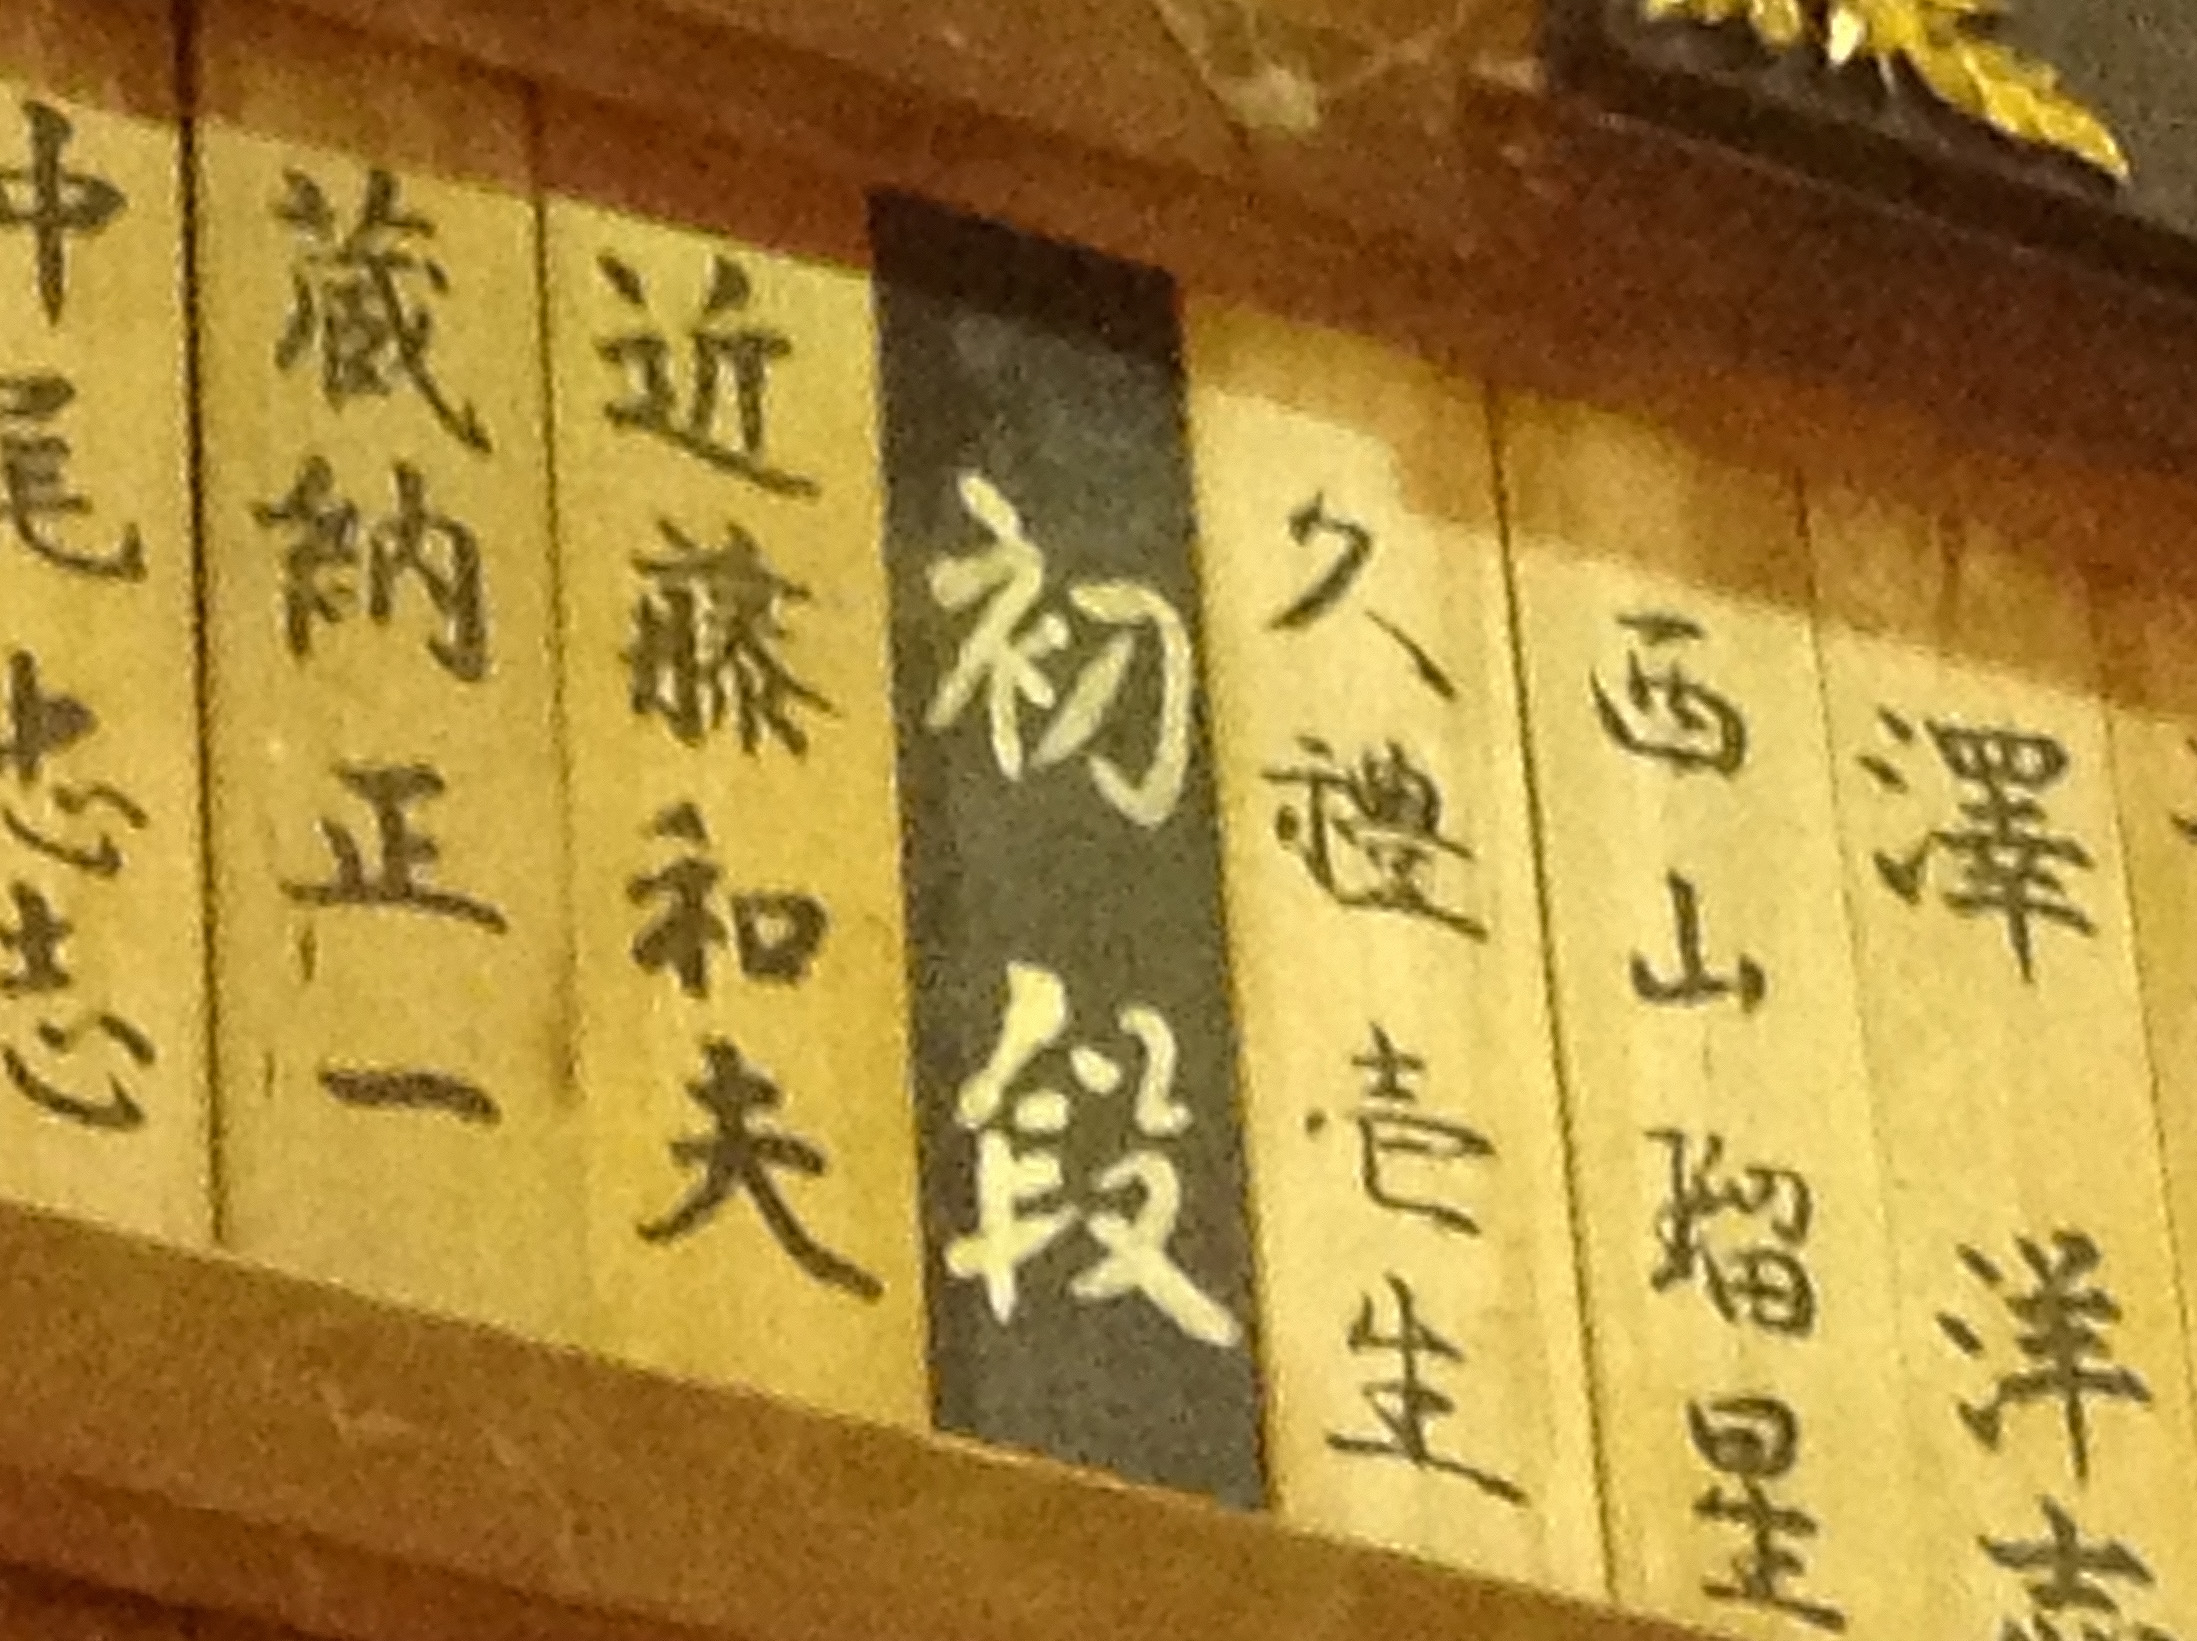 澤 洋
西山瑠星
久禮壱生
初段
近藤和夫
蔵納正一
中尾